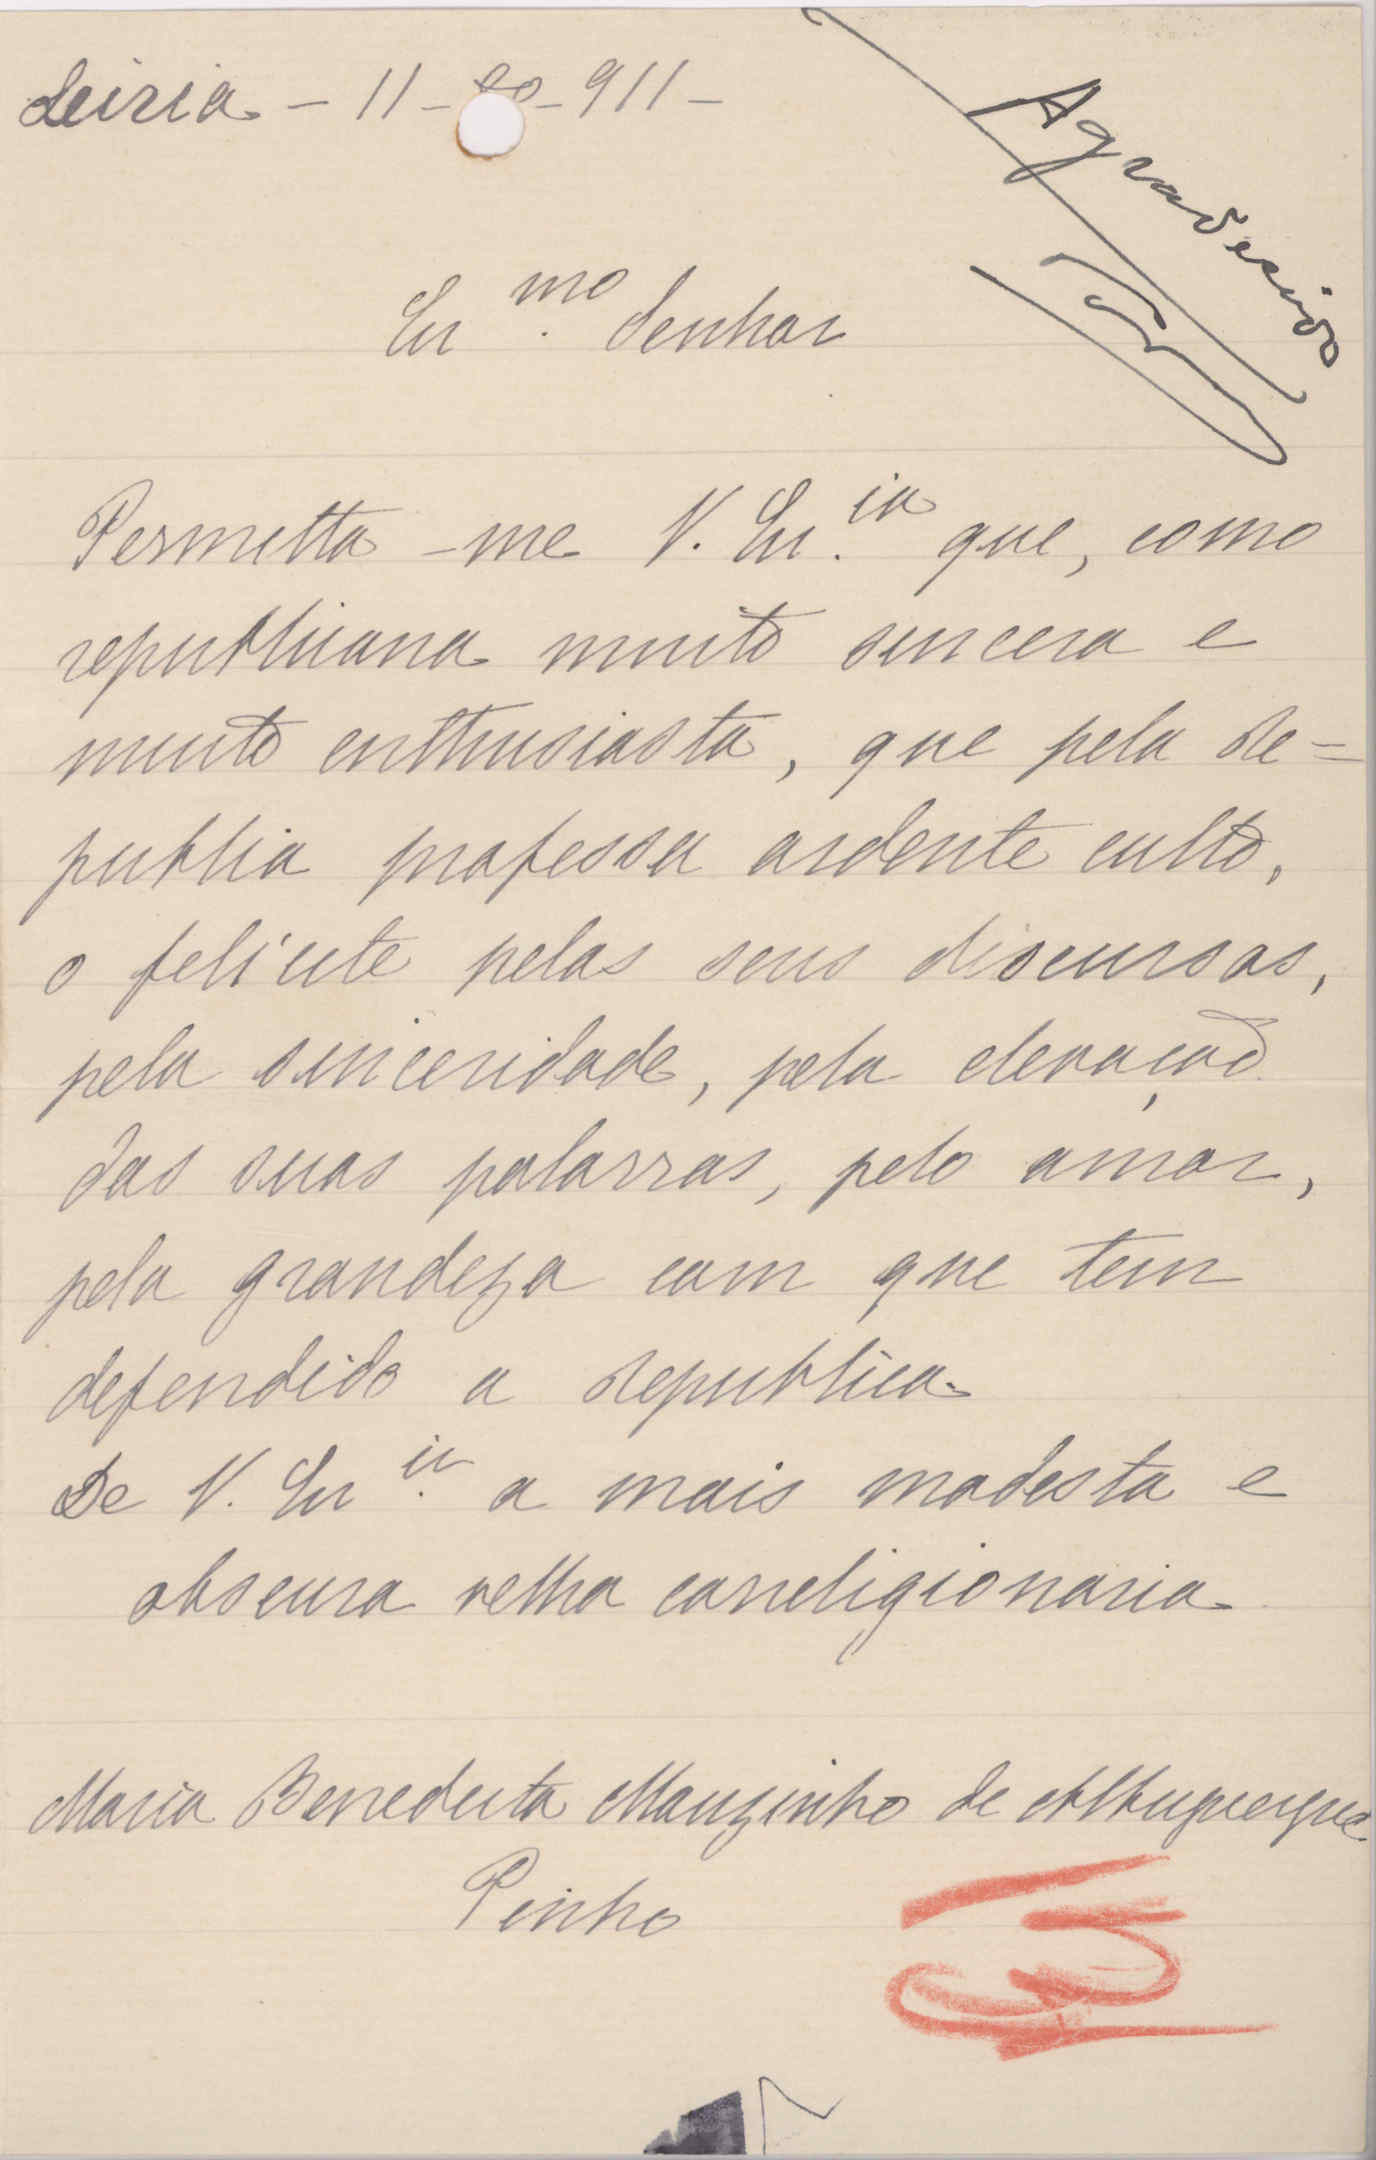 Leiria - 11 - - 911 -
Agradecido
Ex.mo Senhor
Permitta-me V. Ex.cia que, como
republicana muito sincera e
muito enthusiasta, que pela Re=
publica professa ardente culto,
o felicite pelos seus discursos,
pela sinceridade, pela elevação
das suas palavras, pelo amor,
pela grandeza com que tem
defendido a Republica.
De V. Ex.cia a mais modesta e
obscura velha correligionaria
Maria Benedicta Mouzinho de Albuquerque
Pinho